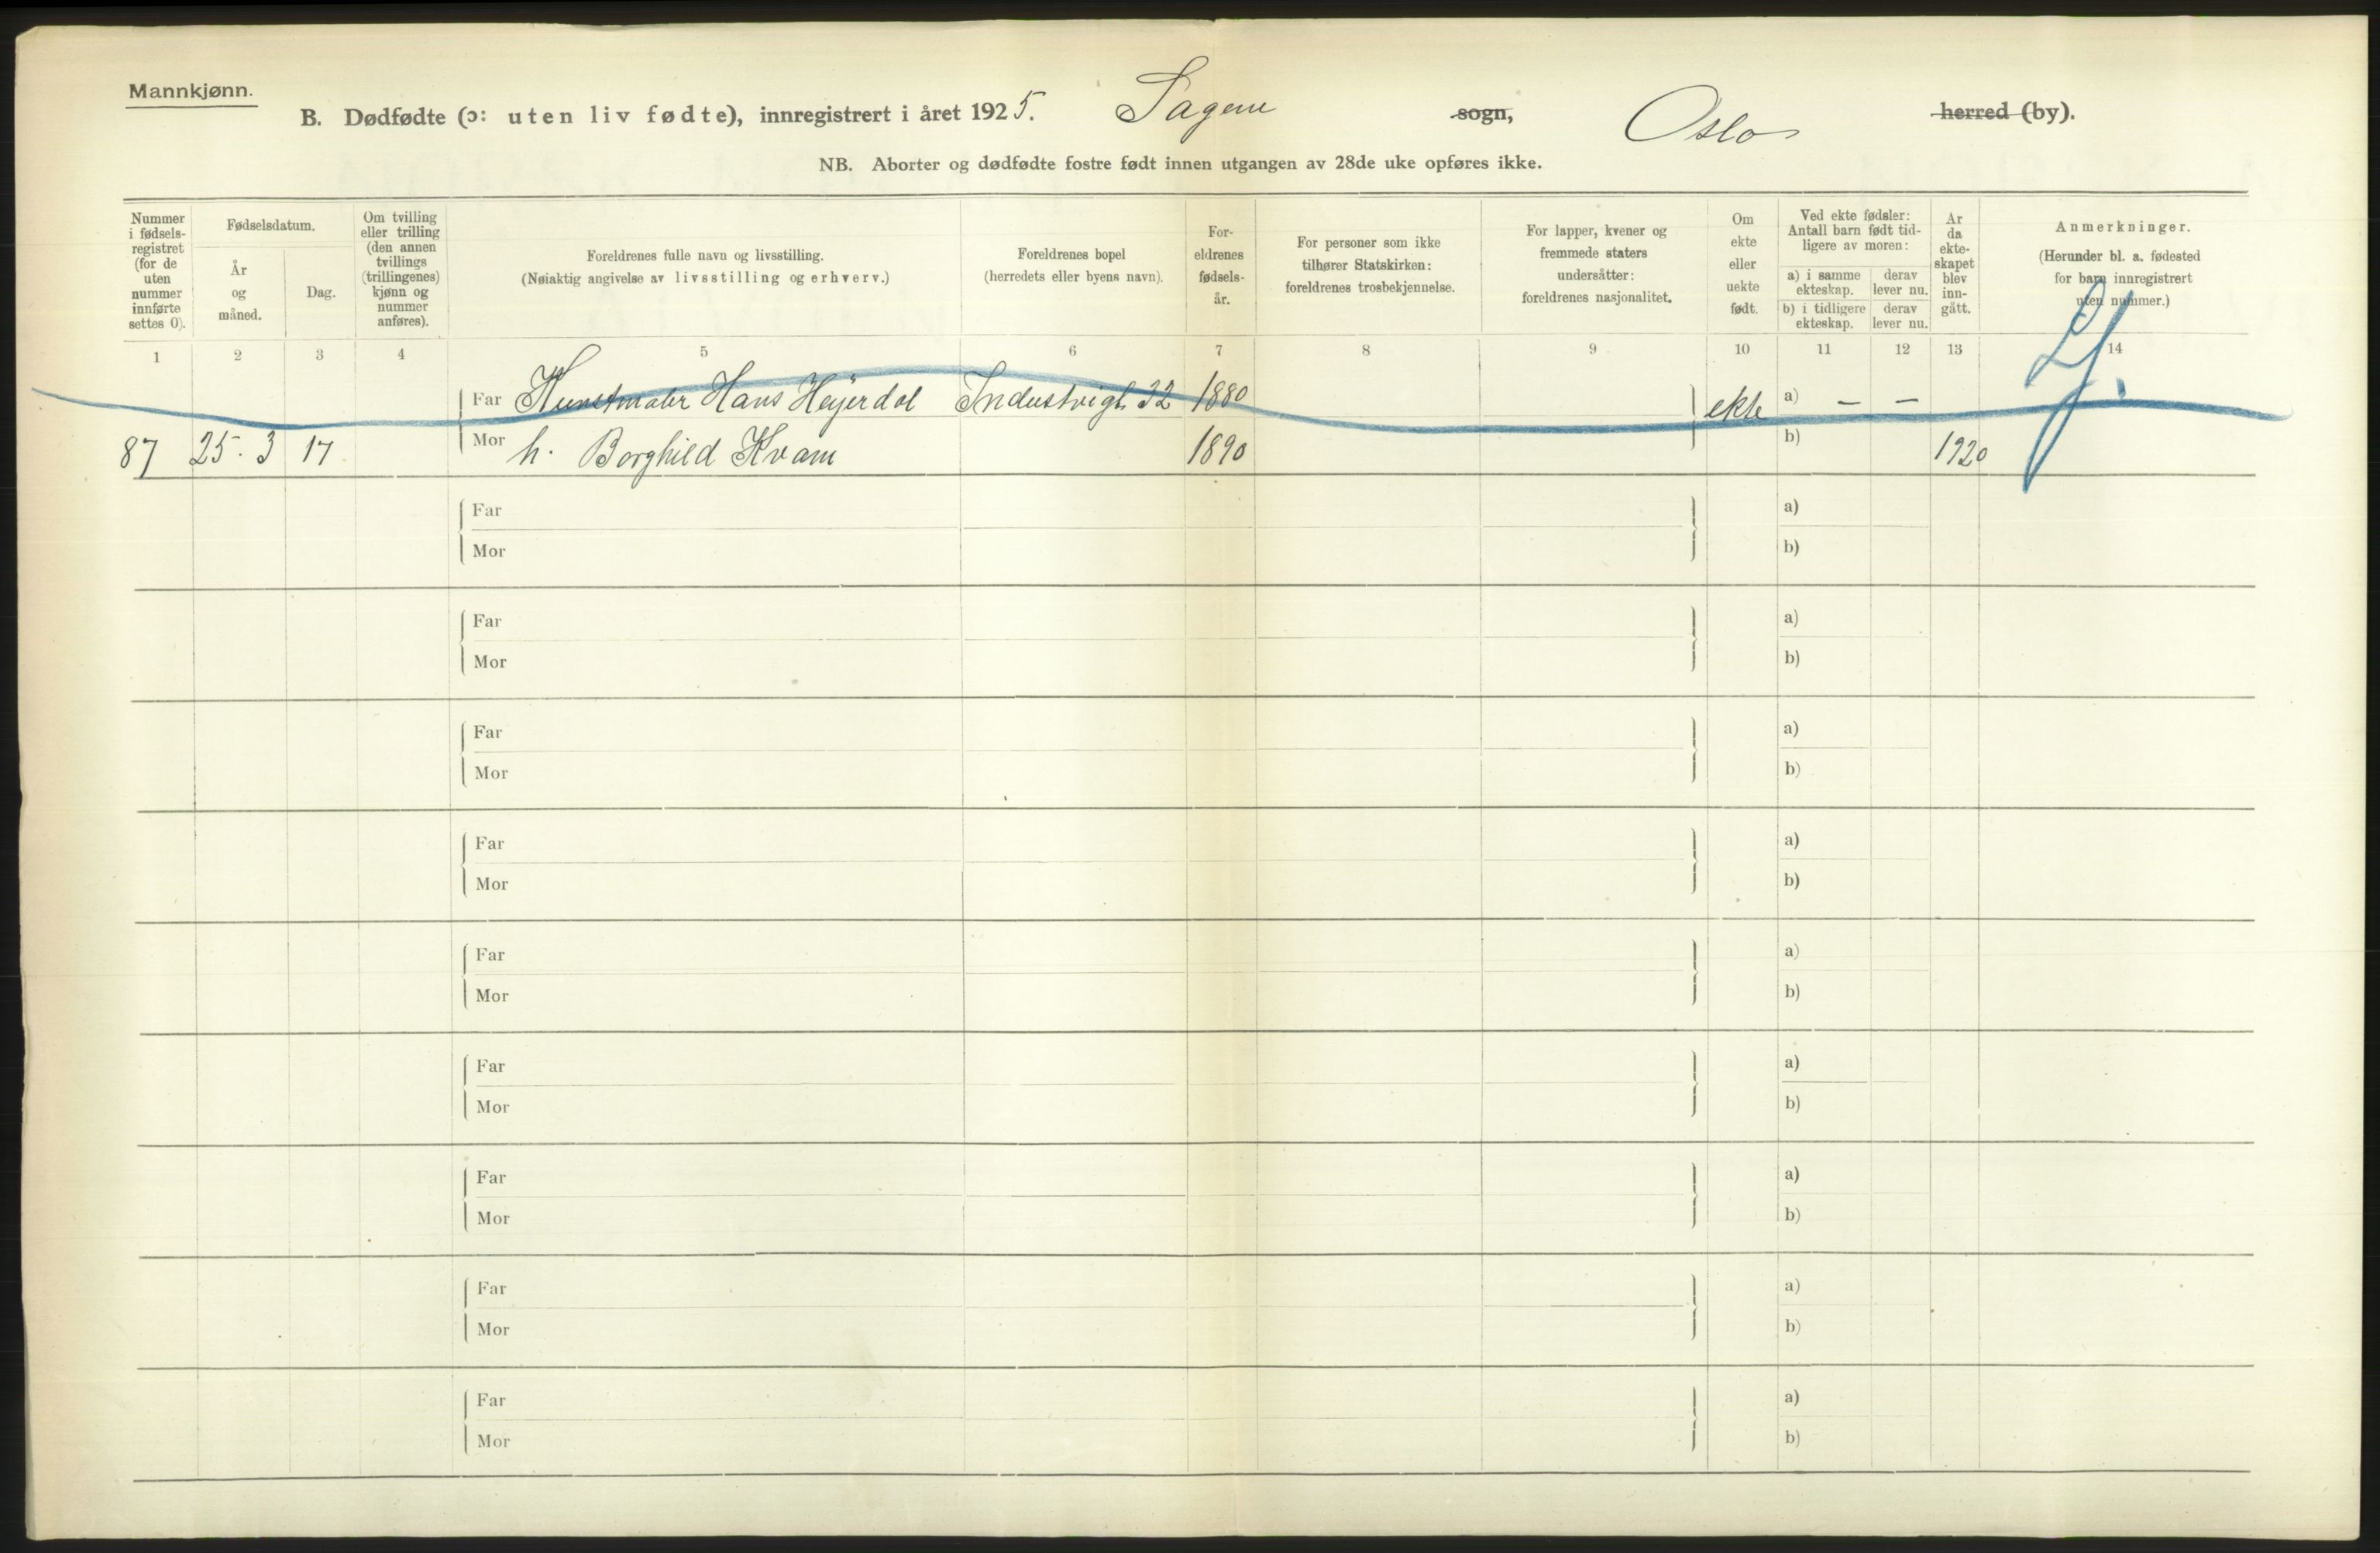 Mannkjønn.
B. Dødfødte (ɔ: uten liv fødte), innregistrert i året 1925. Sagene sogn, Oslo herred (by).
NB. Aborter og dødfødte fostre født innen utgangen av 28de uke opføres ikke.
Nummer i fødsels-registret (for de uten nummer innførte settes 0).
Fødselsdatum.
År og måned.
Dag.
Om tvilling eller trilling (den annen tvillings (trillingenes) kjønn og nummer anføres).
Foreldrenes fulle navn og livsstilling.
(Nøiaktig angivelse av livsstilling og erhverv.)
Foreldrenes bopel
(herredets eller byens navn).
For-eldrenes fødsels-år.
For personer som ikke tilhører Statskirken: foreldrenes trosbekjennelse.
For lapper, kvener og fremmede staters undersåtter: foreldrenes nasjonalitet.
Om ekte eller uekte født.
Ved ekte fødsler: Antall barn født tid-ligere av moren:
a) i samme ekteskap. derav lever nu.
b) i tidligere ekteskap. derav lever nu.
År da ekte-skapet blev inn-gått.
Anmerkninger.
(Herunder bl. a. fødested for barn innregistrert uten nummer.)
1 2 3 4 5 6 7 8 9 10 11 12 13 14
Far Kunstmaler Hans Heyerdal Industrigt. 32 1880 ekte a) — —
87 25. 3 17 Mor h. Borghild Kvam 1890 b) 1920
Far a)
Mor b)
Far a)
Mor b)
Far a)
Mor b)
Far a)
Mor b)
Far a)
Mor b)
Far a)
Mor b)
Far a)
Mor b)
Far a)
Mor b)
Far a)
Mor b)